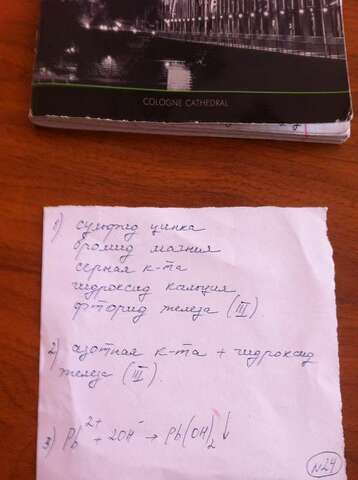 COLOGNE CATHEDRAL
1) сульфид цинка
бромид магния
серная к-та
гидроксид кальция
фторид железа (III)
2) азотная к-та + гидроксид
железа (III).
3) Pb²⁺ + 2OH⁻ → Pb(OH)₂↓
№24